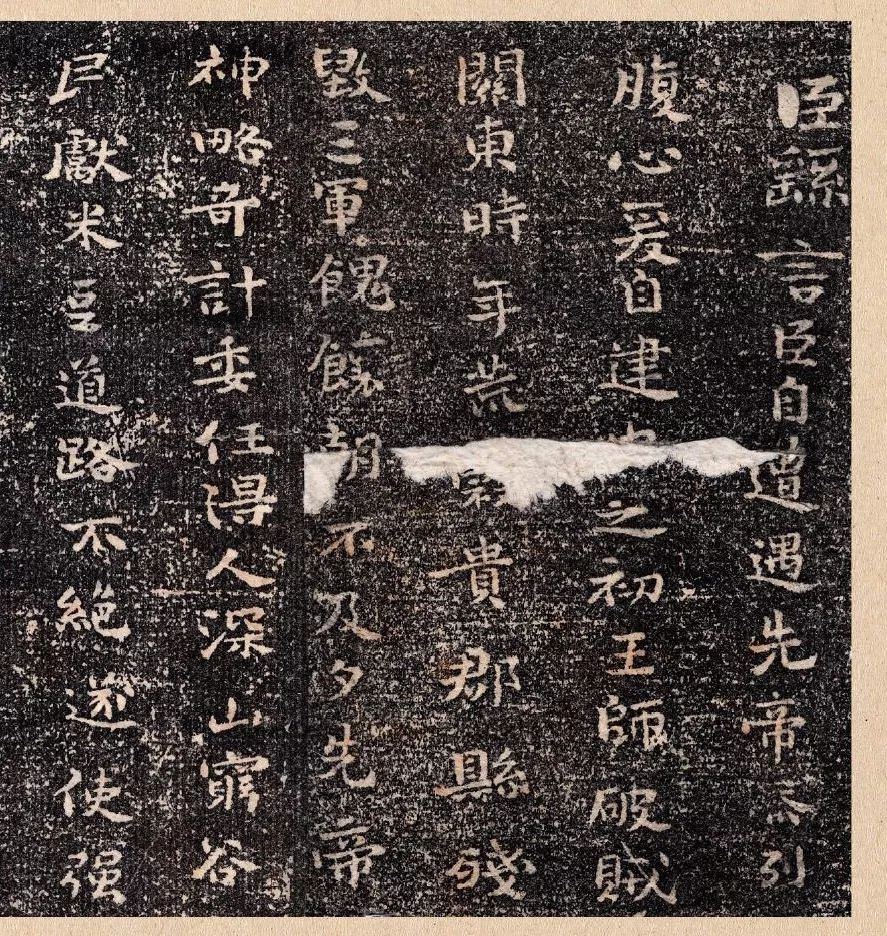 臣繇言臣自遭遇先帝忝列
腹心爰自建之初王師破賊
關東時年荒穀貴郡縣殘
毀三軍餽饟朝不及夕先帝
神略奇計委任得人深山窮谷
民獻米豆道路不絕遂使强